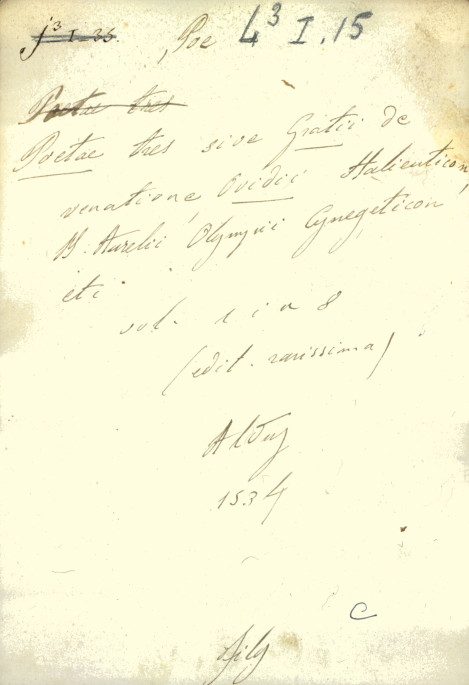 j³ I. 35.
Poe 4³ I. 15
Poetae tres
Poetae tres sive Gratii de
venatione, Ovidii Halieuticon,
M. Aurelii Olympii Cynegeticon
etc.
vol. 1 in 8
(edit. rarissima)
Aldus
1534
C